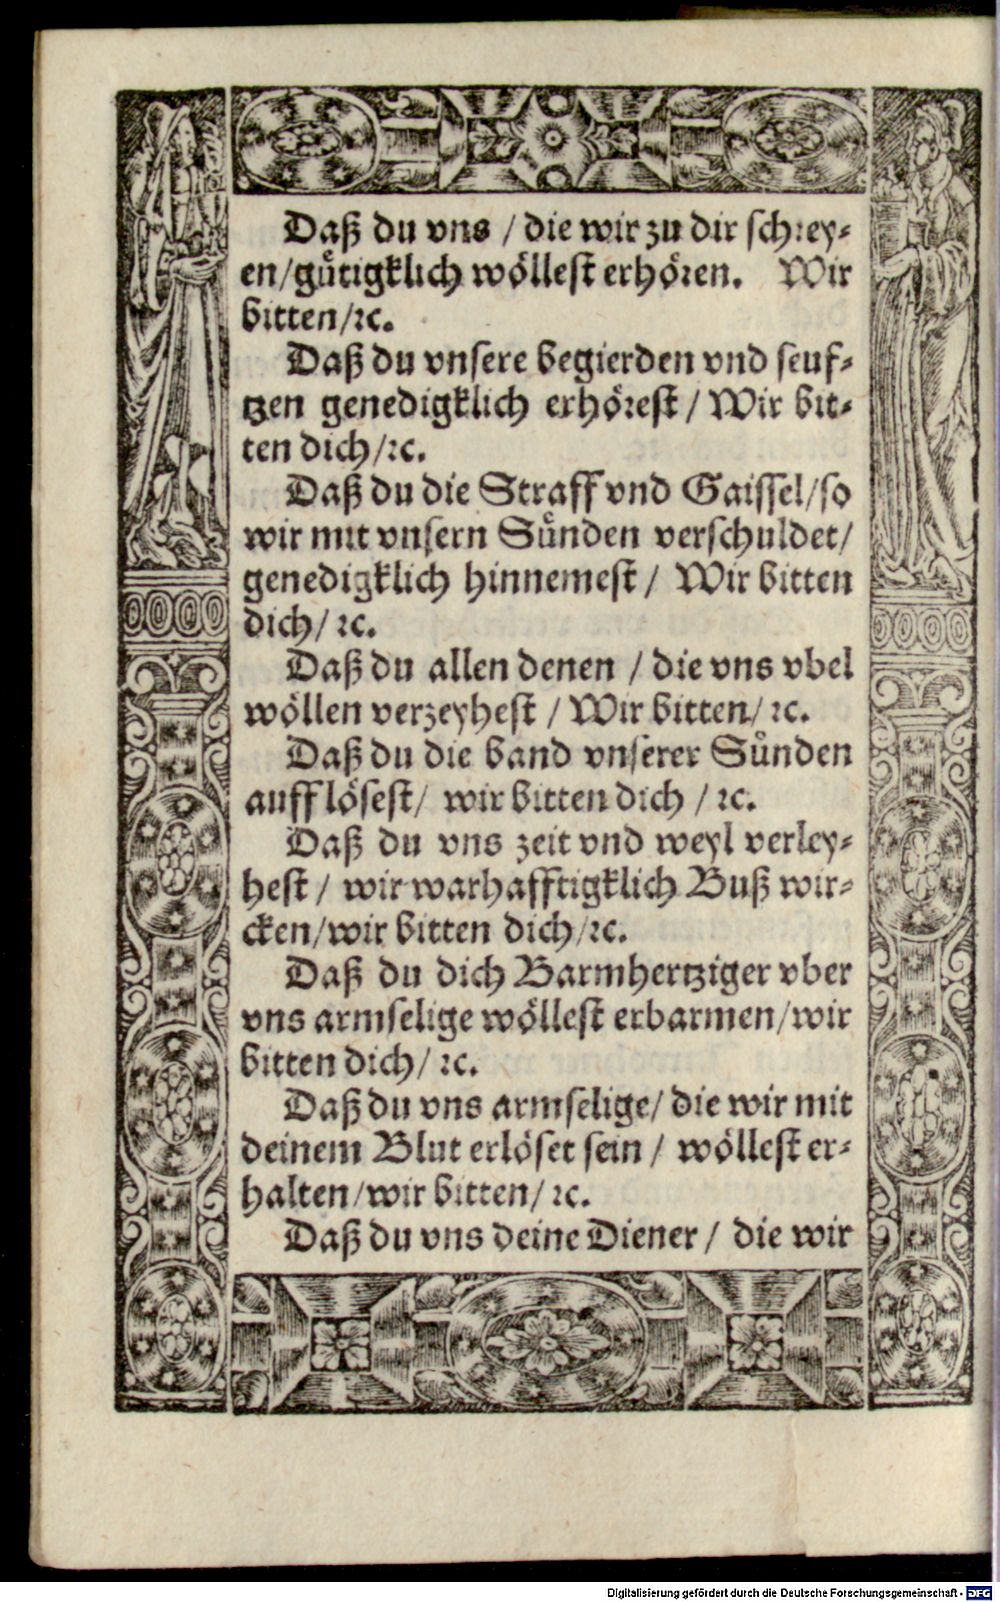 Daß du vns / die wir zu dir schrey-
en/gütigklich wöllest erhören. Wir
bitten/ꝛc.
Daß du vnsere begierden vnd seuf-
tzen genedigklich erhörest / Wir bit-
ten dich/ꝛc.
Daß du die Straff vnd Gaissel/so
wir mit vnsern Sünden verschuldet/
genedigklich hinnemest / Wir bitten
dich/ ꝛc.
Daß du allen denen / die vns vbel
wöllen verzeyhest / Wir bitten/ ꝛc.
Daß du die band vnserer Sünden
aufflösest/ wir bitten dich / ꝛc.
Daß du vns zeit vnd weyl verley-
hest / wir warhafftigklich Buß wir-
cken/wir bitten dich/ꝛc.
Daß du dich Barmhertziger vber
vns armselige wöllest erbarmen/wir
bitten dich/ ꝛc.
Daß du vns armselige/ die wir mit
deinem Blut erlöset sein / wöllest er-
halten/wir bitten/ ꝛc.
Daß du vns deine Diener / die wir
Digitalisierung gefördert durch die Deutsche Forschungsgemeinschaft - DFG